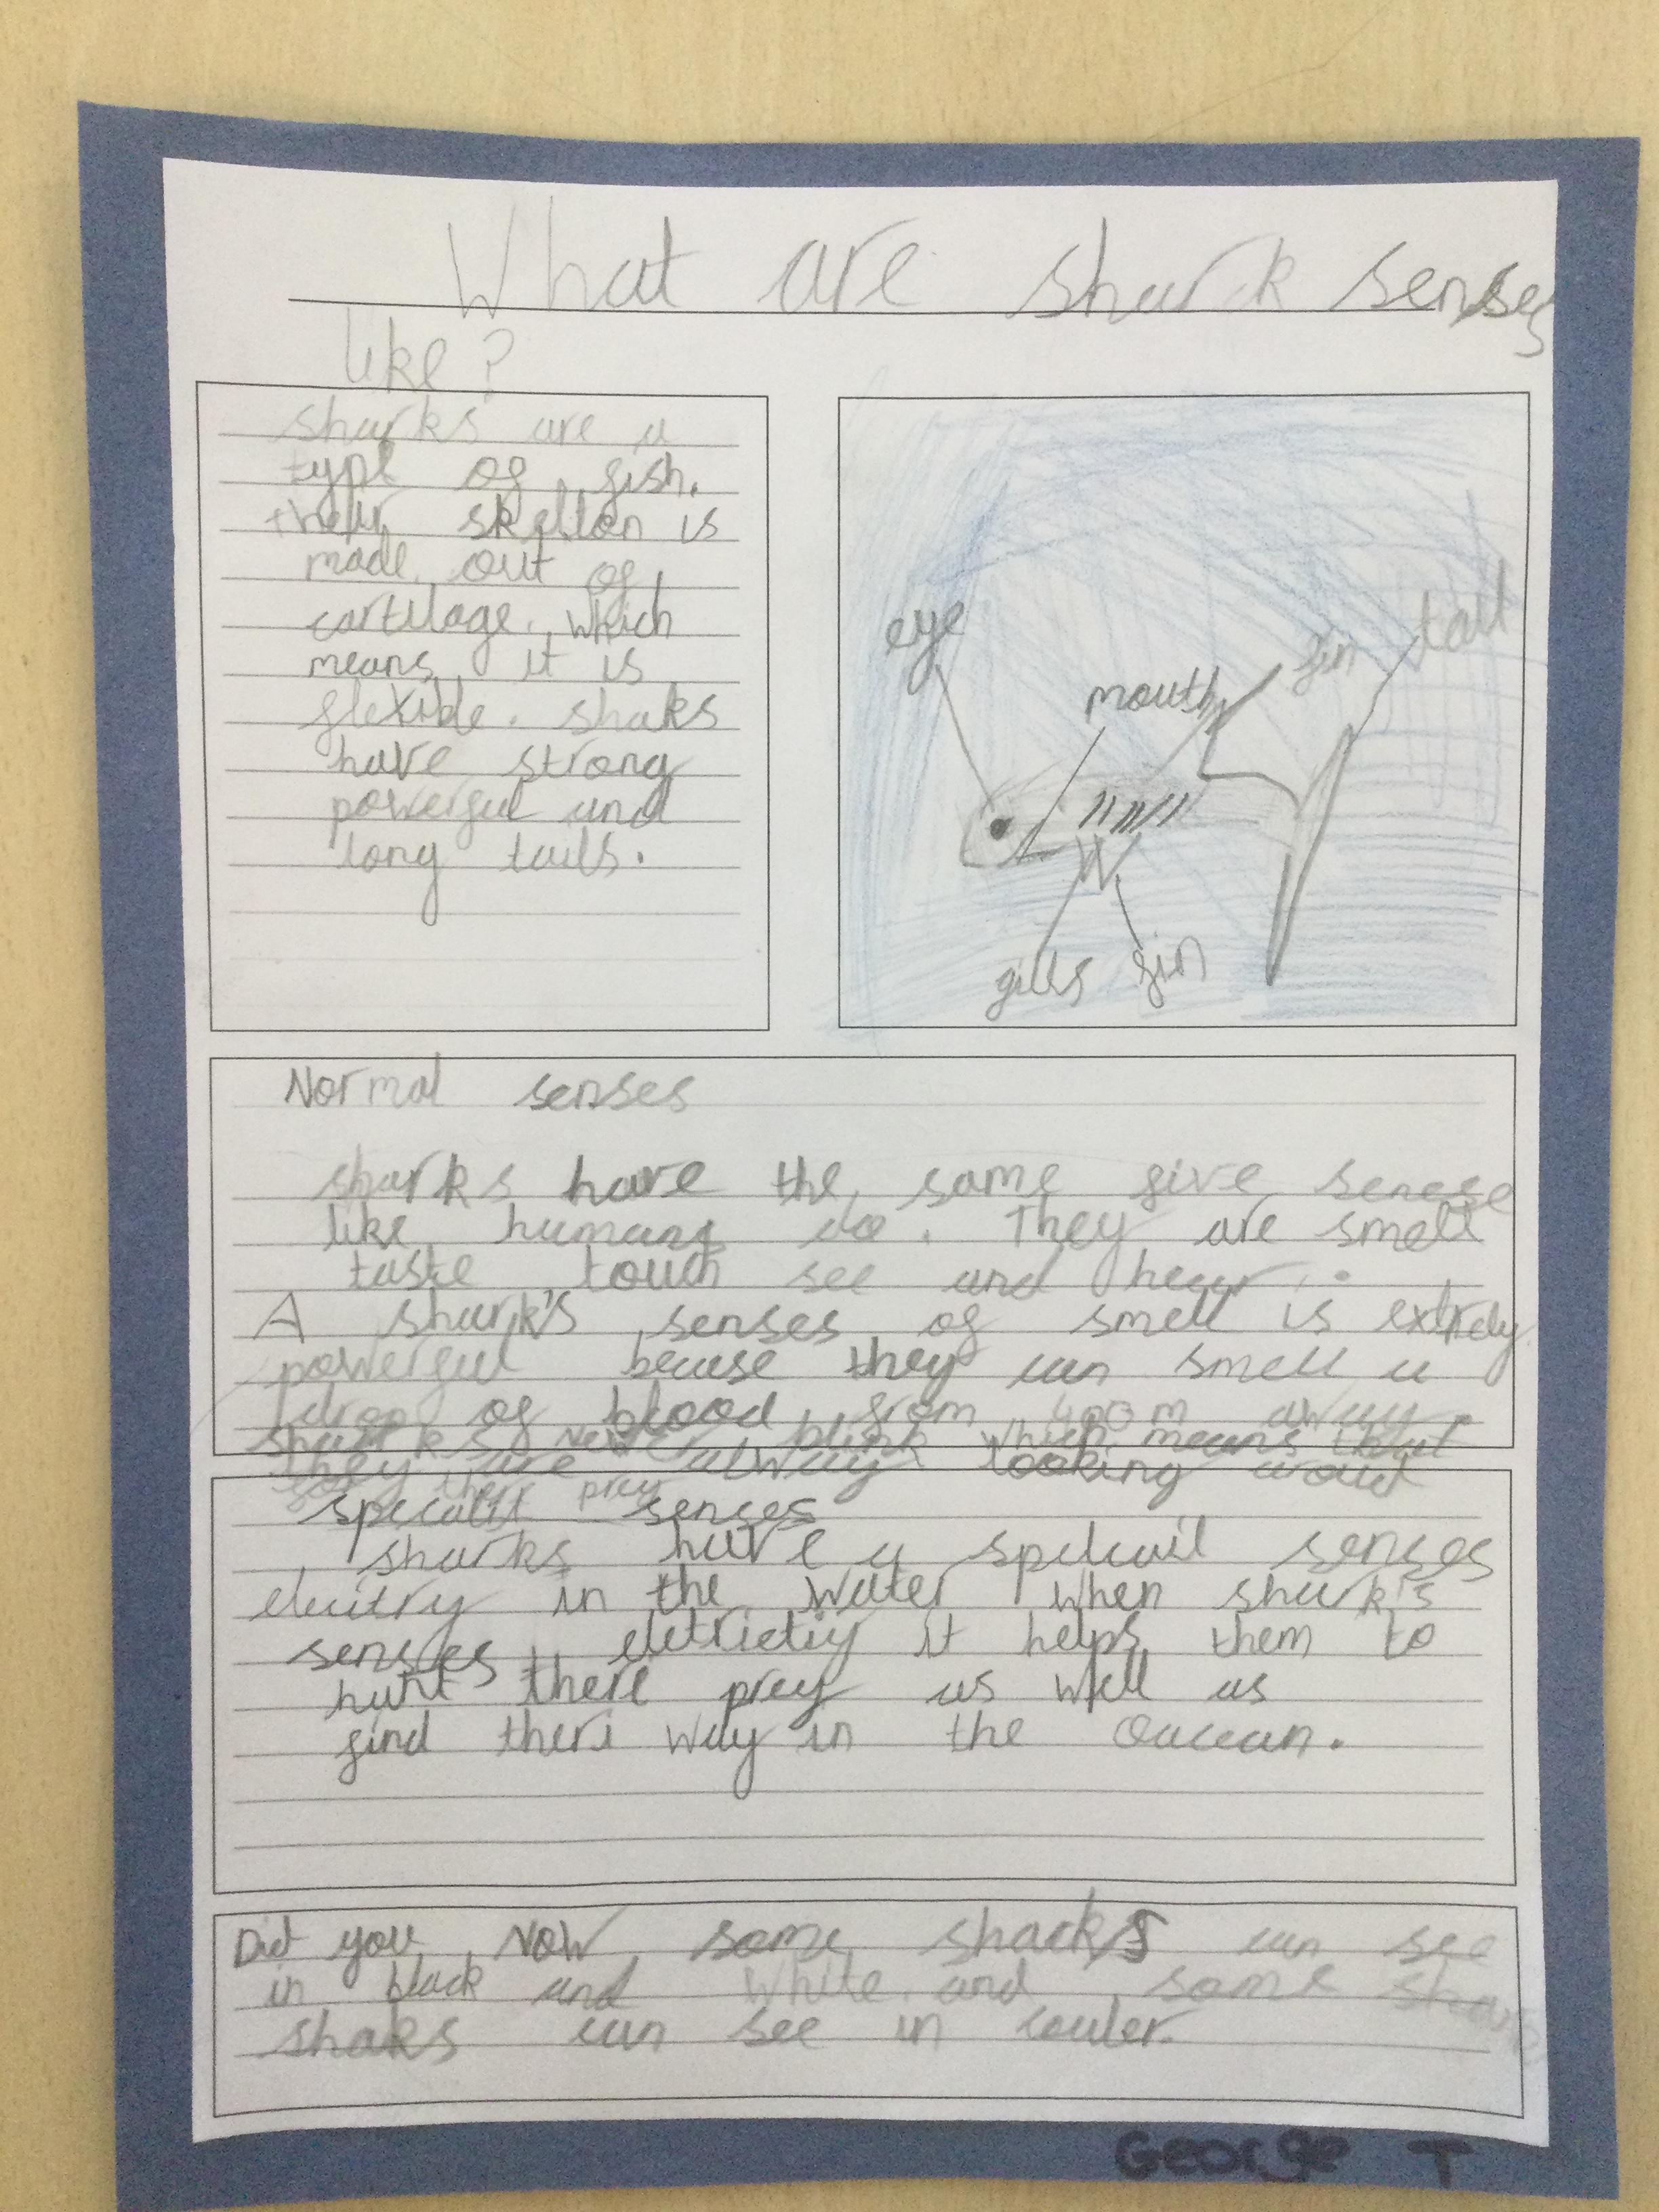 What are shark senses
like?
sharks are a
type of fish.
their skelton is
made out of
cartilage. which
means it is
flexible. shaks
have strong
powerful and
long tails.
eye
mouth
fin
tail
gills
fin
Normal senses
sharks have the same five senese
like humans do. They are smell
taste touch see and hear.
A shark's senses of smell is extrely
powerful becuse they can smell a
drop of blood from away.
sharks never blink which means that
they are alway looking aroud
for there prey
specalit senses
sharks have a spelcail senses
elecitry in the water when shark's
senses eletricticy it helps them to
hunt there prey as well as
find there way in the Oacean.
Did you NOW some sharks can see
in black and white and some
shaks can see in couler.
George T